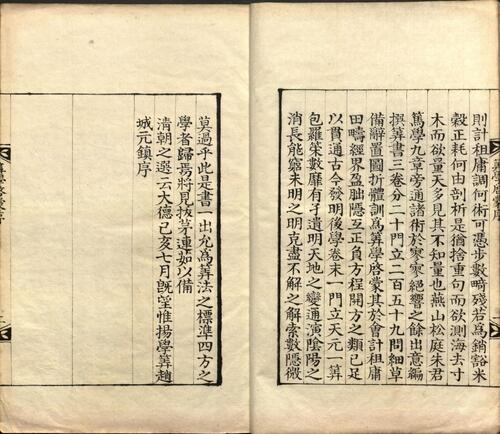 則計租庸調何術可憑步數畸殘若爲銷豁米
穀正耗何由剖析是猶捨重句而欲測海去寸
木而欲量天多見其不知量也燕山松庭朱君
篤學九章旁通諸術於寥寥絕響之餘出意編
撰筭書三卷分二十門立二百五十九問細草
備辭置圖折體訓爲筭學啓蒙其於會計租庸
田疇經界盈朒隱互正負方程開方之類已足
以貫通古今發明後學卷末一門立天元一筭
包羅策數靡有孑遺明天地之變通演陰陽之
消長能窮未明之明克盡不解之解索數隱微
莫過乎此是書一出允爲筭法之標準四方之
學者歸焉將見拔茅連茹以備
清朝之選云大德己亥七月旣望惟揚學筭趙
城元鎮序